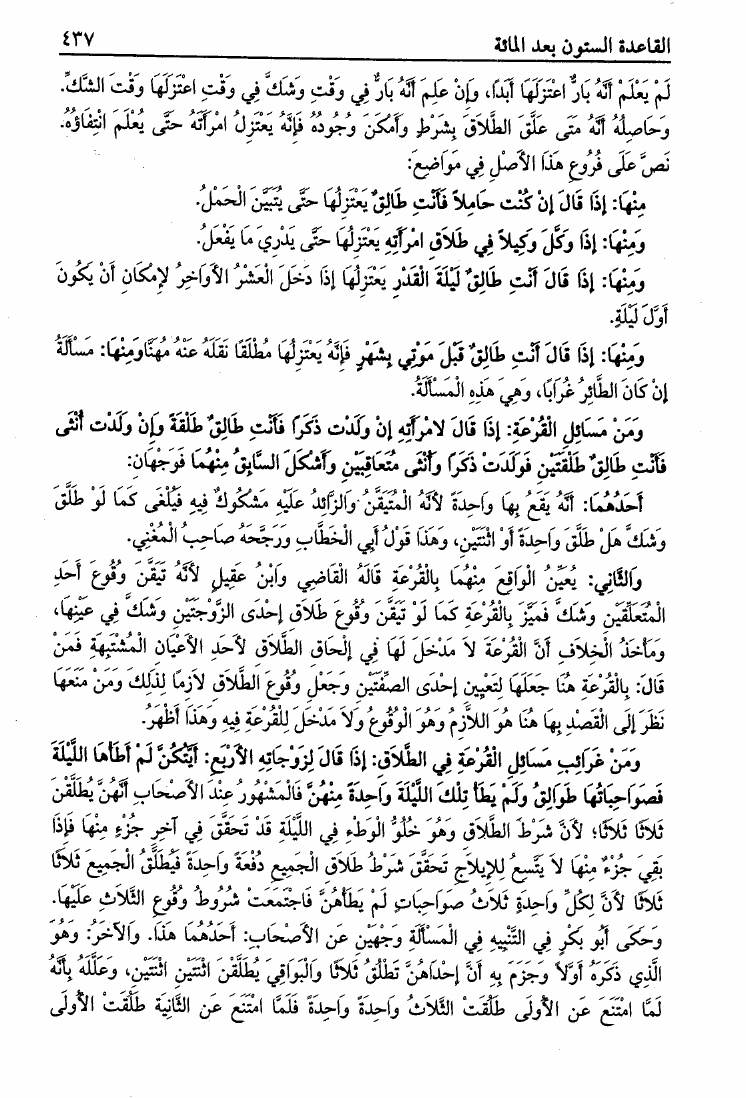 القاعدة الستون بعد المائة ٤٣٧
لَمْ يَعْلَمْ أَنَّهُ بَارٌّ اعْتَزَلَهَا أَبَدًا، وَإِنْ عَلِمَ أَنَّهُ بَارٌّ فِي وَقْتٍ وَشَكَّ فِي وَقْتٍ اعْتَزَلَهَا وَقْتَ الشَّكِّ.
وَحَاصِلُهُ أَنَّهُ مَتَى عَلَّقَ الطَّلَاقَ بِشَرْطٍ وَأَمْكَنَ وُجُودُهُ فَإِنَّهُ يَعْتَزِلُ امْرَأَتَهُ حَتَّى يُعْلَمَ انْتِفَاؤُهُ.
نَصَّ عَلَى فُرُوعِ هَذَا الأَصْلِ فِي مَوَاضِعَ:
مِنْهَا: إِذَا قَالَ إِنْ كُنْت حَامِلاً فَأَنْتِ طَالِقٌ يَعْتَزِلُهَا حَتَّى يُتَبَيَّنَ الْحَمْلُ.
وَمِنْهَا: إِذَا وَكَّلَ وَكِيلاً فِي طَلَاقِ امْرَأَتِهِ يَعْتَزِلُهَا حَتَّى يَدْرِيَ مَا يَفْعَلُ.
وَمِنْهَا: إِذَا قَالَ أَنْتِ طَالِقٌ لَيْلَةَ الْقَدْرِ يَعْتَزِلُهَا إِذَا دَخَلَ الْعَشْرُ الأَوَاخِرُ لإِمْكَانِ أَنْ يَكُونَ
أَوَّلَ لَيْلَةٍ.
وَمِنْهَا: إِذَا قَالَ أَنْتِ طَالِقٌ قَبْلَ مَوْتِي بِشَهْرٍ فَإِنَّهُ يَعْتَزِلُهَا مُطْلَقًا نَقَلَهُ عَنْهُ مُهَنَّاوَمِنْهَا: مَسْأَلَةُ
إِنْ كَانَ الطَّائِرُ غُرَابًا، وَهِيَ هَذِهِ الْمَسْأَلَةُ.
وَمَنْ مَسَائِلِ الْقُرْعَةِ: إِذَا قَالَ لامْرَأَتِهِ إِنْ وَلَدْت ذَكَرًا فَأَنْتِ طَالِقٌ طَلْقَةً وَإِنْ وَلَدْت أُنْثَى
فَأَنْتِ طَالِقٌ طَلْقَتَيْنِ فَوَلَدَتْ ذَكَرًا وَأُنْثَى مُتَعَاقِبَيْنِ وَأَشْكَلَ السَّابِقُ مِنْهُمَا فَوَجْهَانِ:
أَحَدُهُمَا: أَنَّهُ يَقَعُ بِهَا وَاحِدَةً لأَنَّهُ الْمُتَيَقَّنُ وَالزَّائِدُ عَلَيْهِ مَشْكُوكٌ فِيهِ فَيُلْغَى كَمَا لَوْ طَلَّقَ
وَشَكَّ هَلْ طَلَّقَ وَاحِدَةً أَوْ اثْنَتَيْنِ، وَهَذَا قَوْلُ أَبِي الْخَطَّابِ وَرَجَّحَهُ صَاحِبُ الْمُغْنِي.
وَالثَّانِي: يُعَيَّنُ الْوَاقِعَ مِنْهُمَا بِالْقُرْعَةِ قَالَهُ الْقَاضِي وَابْنُ عَقِيلٍ لأَنَّهُ تَيَقَّنَ وُقُوعَ أَحَدِ
الْمُتَعَلِّقَيْنِ وَشَكَّ فَمَيَّزَ بِالْقُرْعَةِ كَمَا لَوْ تَيَقَّنَ وُقُوعَ طَلَاقِ إِحْدَى الزَّوْجَتَيْنِ وَشَكَّ فِي عَيْنِهَا،
وَمَأْخَذُ الْخِلَافِ أَنَّ الْقُرْعَةَ لاَ مَدْخَلَ لَهَا فِي إِلْحَاقِ الطَّلَاقِ لأَحَدِ الأَعْيَانِ الْمُشْتَبِهَةِ فَمَنْ
قَالَ: بِالْقُرْعَةِ هُنَا جَعَلَهَا لِتَعْيِينِ إِحْدَى الصِّفَتَيْنِ وَجَعْلِ وُقُوعِ الطَّلَاقِ لاَزِمًا لِذَلِكَ وَمَنْ مَنَعَهَا
نَظَرَ إِلَى الْقَصْدِ بِهَا هُنَا هُوَ اللاَّزِمُ وَهُوَ الْوُقُوعُ وَلاَ مَدْخَلَ لِلْقُرْعَةِ فِيهِ وَهَذَا أَظْهَرُ.
وَمَنْ غَرَائِبِ مَسَائِلِ الْقُرْعَةِ فِي الطَّلَاقِ: إِذَا قَالَ لِزَوْجَاتِهِ الأَرْبَعِ: أَيَّتُكُنَّ لَمْ أَطَأْهَا اللَّيْلَةَ
فَصَوَاحِبَاتُهَا طَوَالِقُ وَلَمْ يَطَأْ تِلْكَ اللَّيْلَةَ وَاحِدَةً مِنْهُنَّ فَالْمَشْهُورُ عِنْدَ الأَصْحَابِ أَنَّهُنَّ يُطَلَّقْنَ
ثَلَاثًا ثَلَاثًا؛ لأَنَّ شَرْطَ الطَّلَاقِ وَهُوَ خُلُوُّ الْوَطْءِ فِي اللَّيْلَةِ قَدْ تَحَقَّقَ فِي آخِرِ جُزْءٍ مِنْهَا فَإِذَا
بَقِيَ جُزْءٌ مِنْهَا لاَ يَتَّسِعُ لِلإِيلَاجِ تَحَقَّقَ شَرْطُ طَلَاقِ الْجَمِيعِ دُفْعَةً وَاحِدَةً فَيُطَلَّقُ الْجَمِيعَ ثَلَاثًا
ثَلَاثًا لأَنَّ لِكُلِّ وَاحِدَةٍ ثَلَاثُ صَوَاحِبَاتٍ لَمْ يَطَأْهُنَّ فَاجْتَمَعَتْ شُرُوطُ وُقُوعِ الثَّلَاثِ عَلَيْهَا.
وَحَكَى أَبُو بَكْرٍ فِي التَّنْبِيهِ فِي الْمَسْأَلَةِ وَجْهَيْنِ عَنِ الأَصْحَابِ: أَحَدُهُمَا هَذَا. وَالآخَرُ: وَهُوَ
الَّذِي ذَكَرَهُ أَوَّلاً وَجَزَمَ بِهِ أَنَّ إِحْدَاهُنَّ تَطْلُقُ ثَلَاثًا وَالْبَوَاقِي يُطَلَّقْنَ اثْنَتَيْنِ اثْنَتَيْنِ، وَعَلَّلَهُ بِأَنَّهُ
لَمَّا امْتَنَعَ عَنِ الأُولَى طَلُقَتْ الثَّلَاثُ وَاحِدَةً وَاحِدَةً فَلَمَّا امْتَنَعَ عَنِ الثَّانِيَةِ طَلُقَتْ الأُولَى